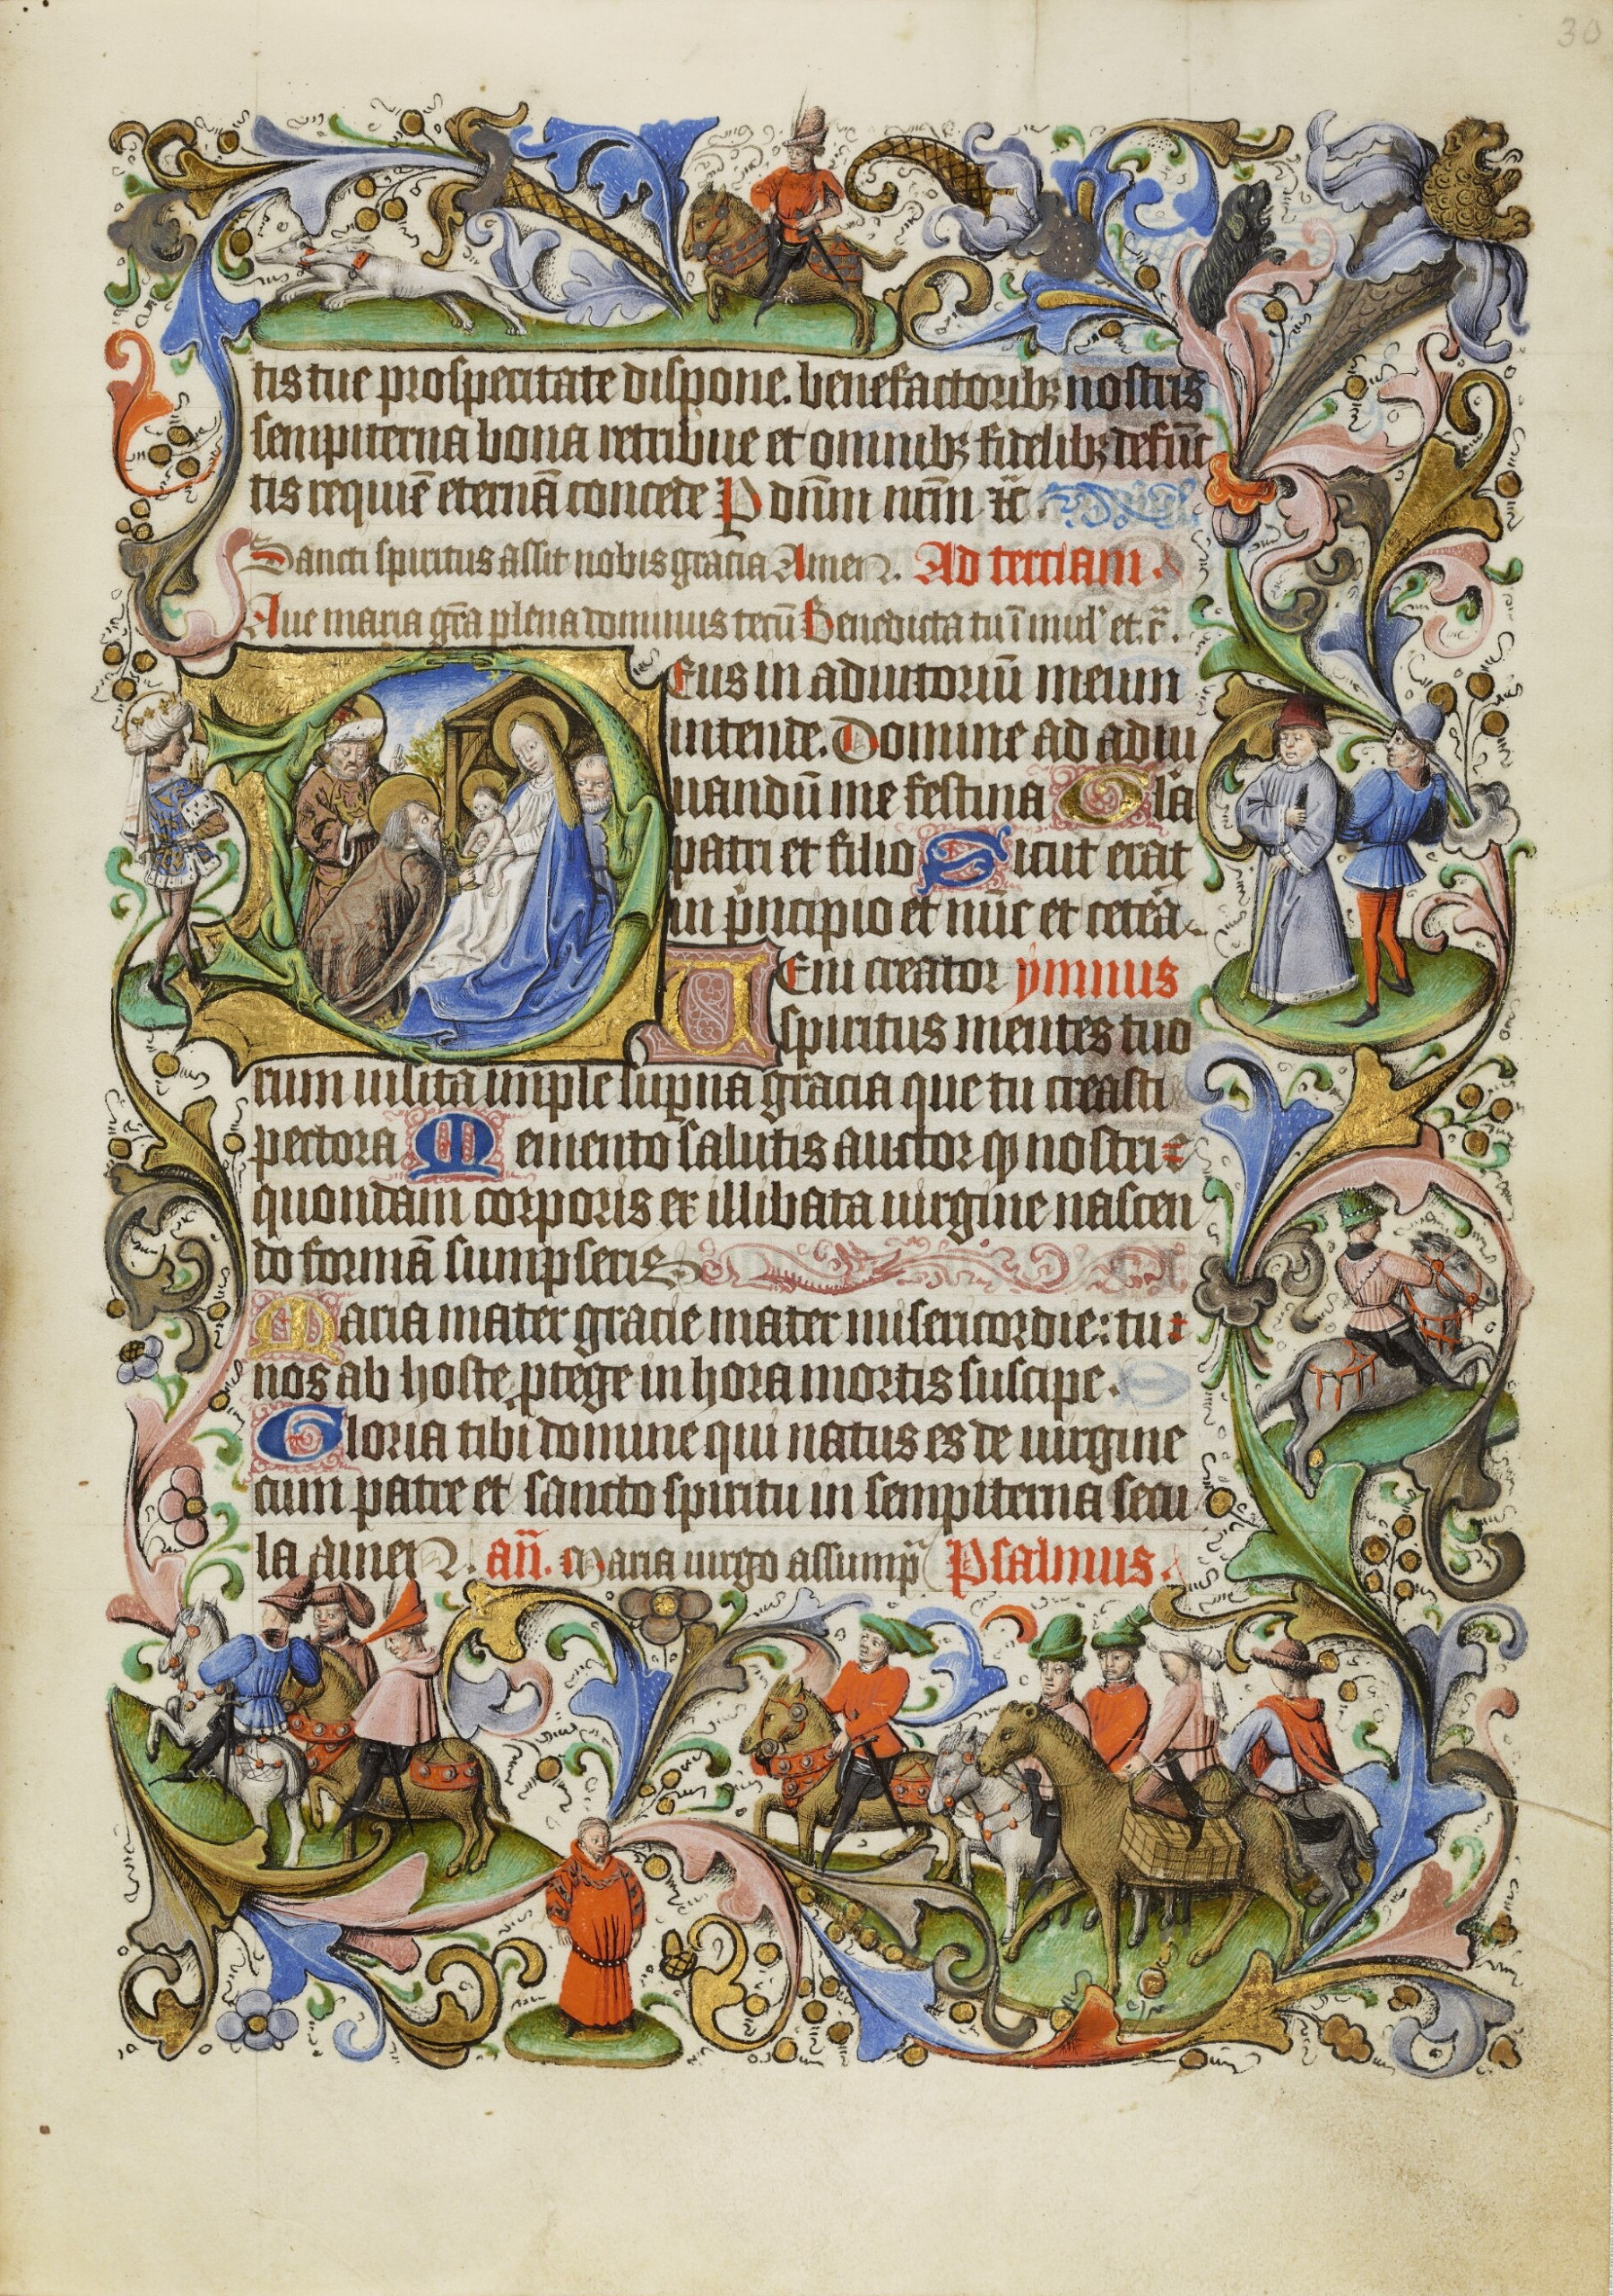 30
tis tue prosperitate dispone. benefactoribꝫ nostris
sempiterna bona retribue et omnibꝫ fidelibꝫ defūc
tis requiē eternā concede P dūm nrm̄ ꝛc̄.
Sancti spiritus assit nobis gracia Amen. Ad terciam.
Aue maria gr̄a plena dominus tecū Benedicta tu ī mul' et.c̄.
Deus in adiutoriū meum
intende. Domine ad adiu
uandū me festina Gla
patri et filio Sicut erat
in p̄ncipio et nūc et cetēa.
Ueni creator ymnus
spiritus mentes tuo
rum uisita imple sup̲na gracia que tu creasti
pectora Memento salutis auctor qꝫ nostri
quondam corporis ex illibata uirgine nascen
do formā sumpseris
Maria mater gracie mater misericordie: tu
nos ab hoste ꝓtege in hora mortis suscipe.
Gloria tibi domine qui natus es de uirgine
cum patre et sancto spiritu in sempiterna secu
la amen. an̄. Maria uirgo assump̄ Psalmus.